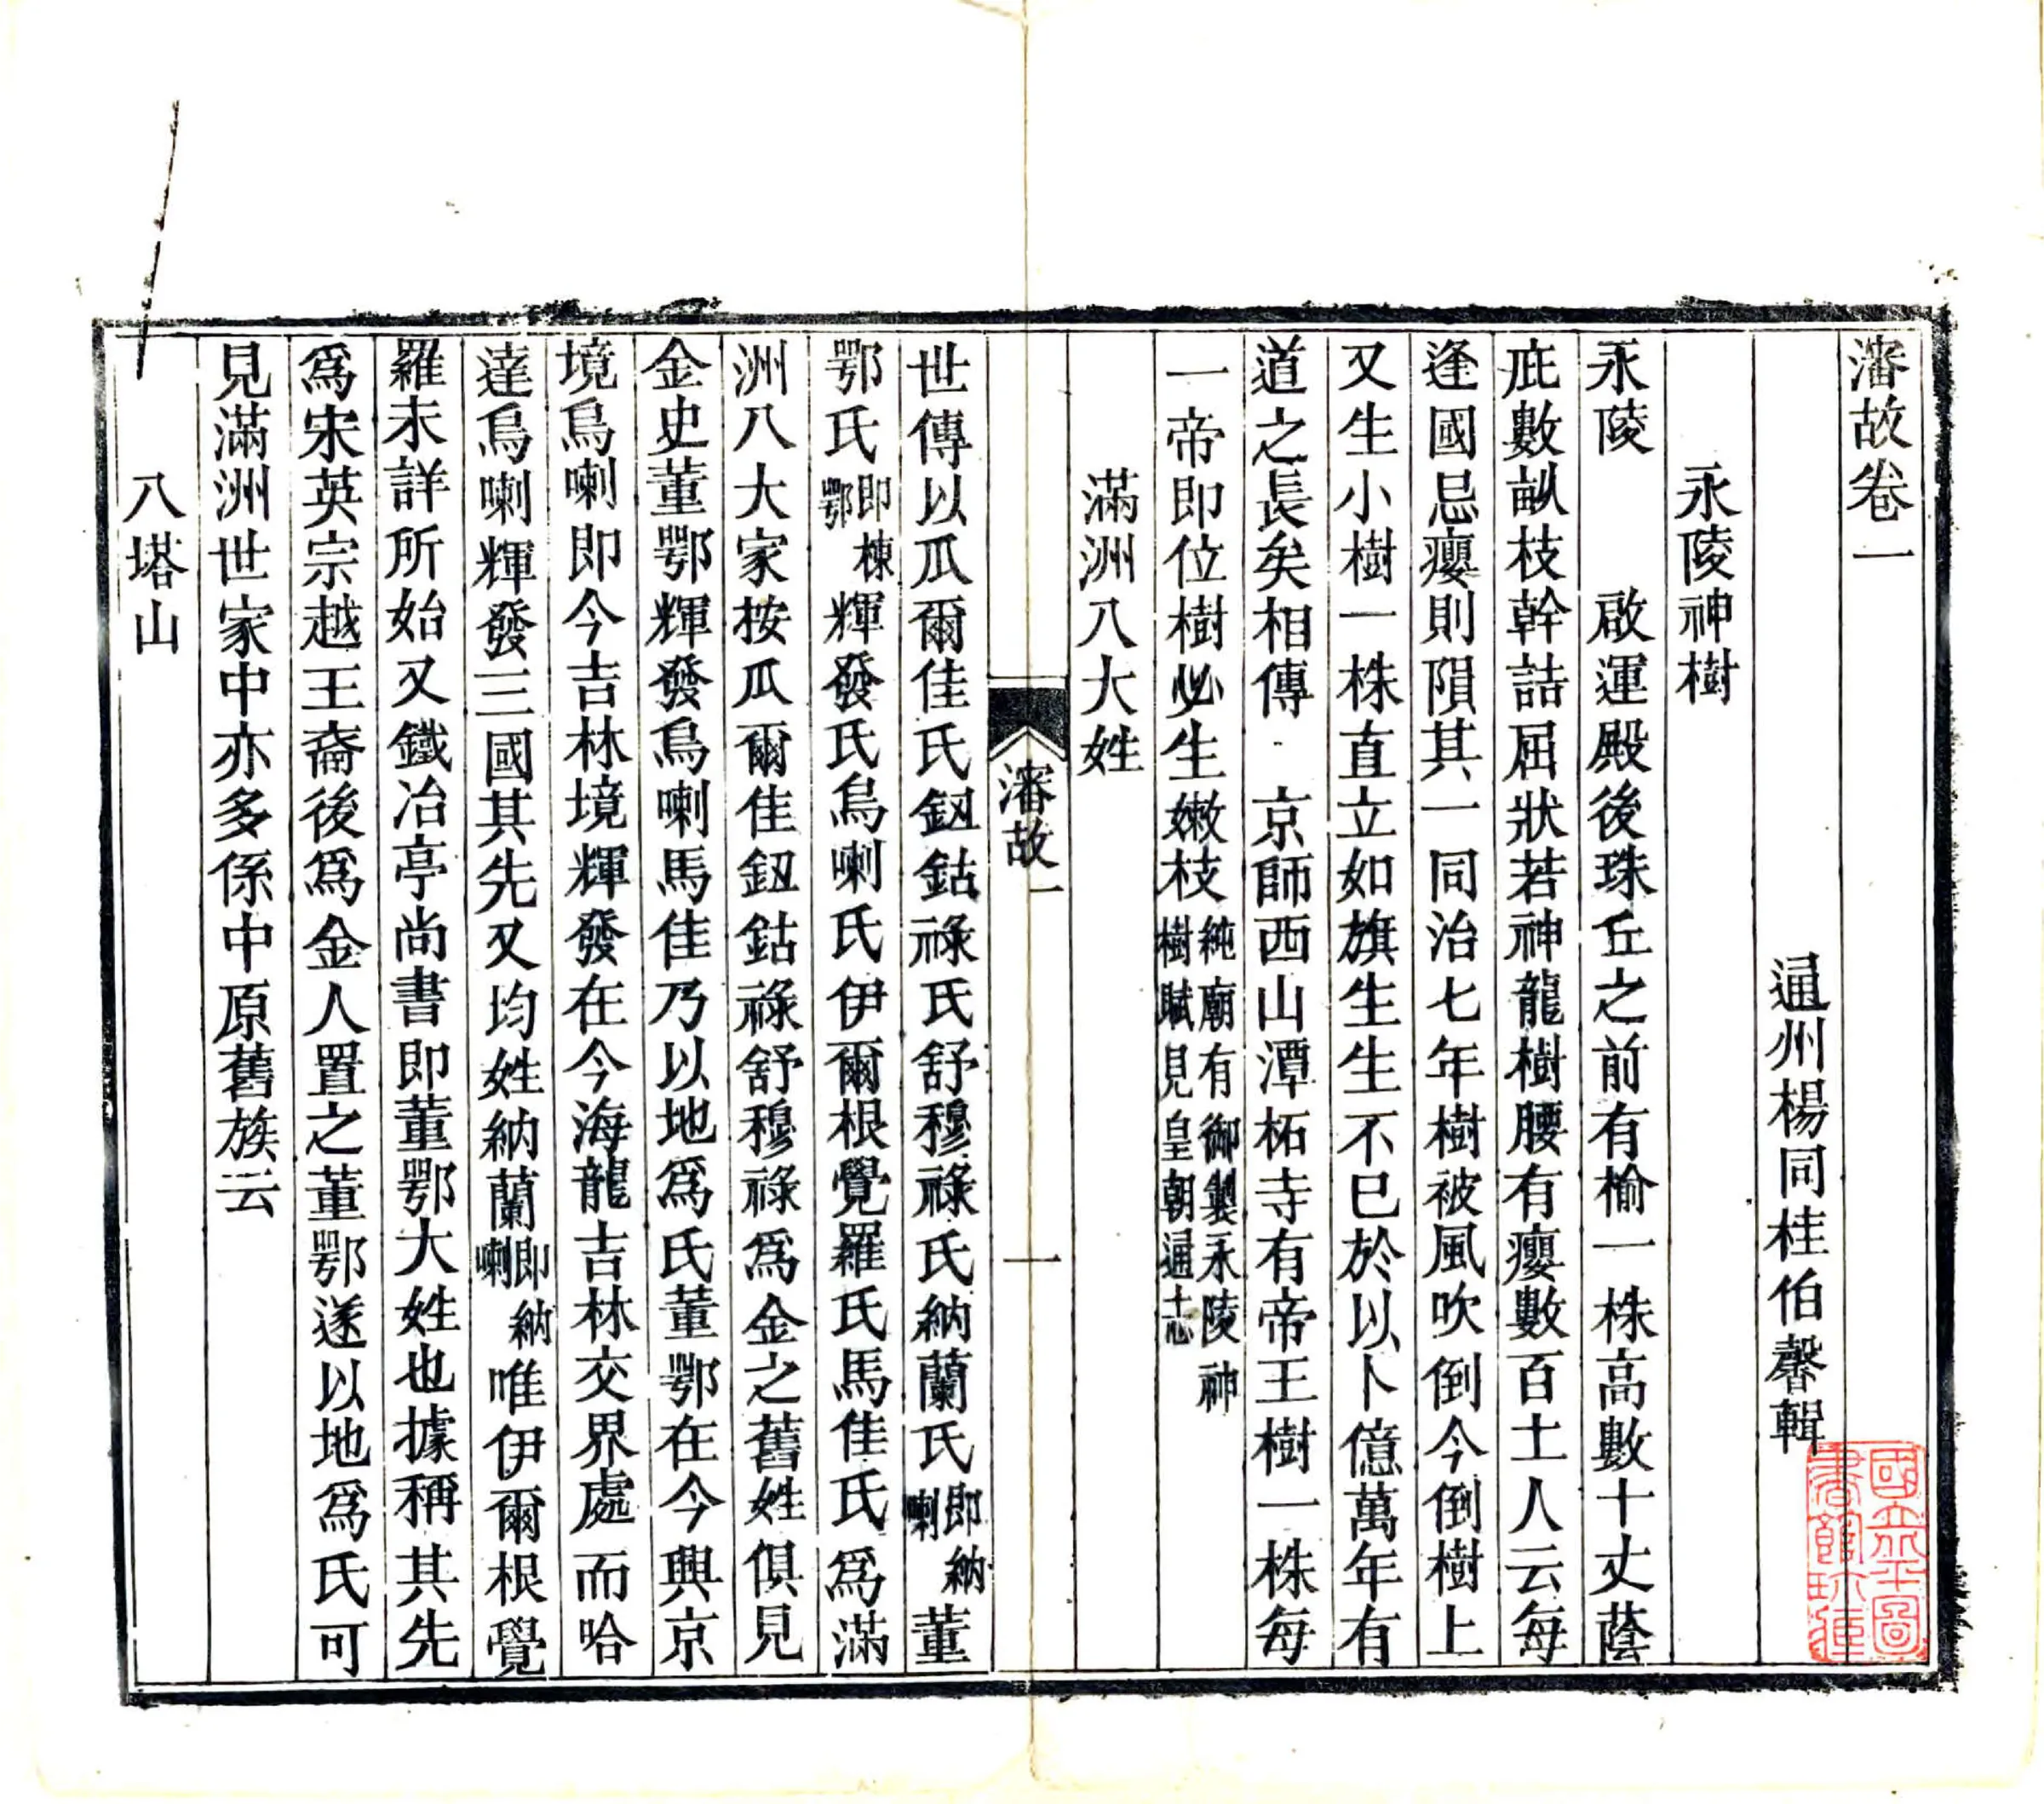 瀋故卷一
通州楊同桂伯馨輯
永陵神樹
永陵　啟運殿後珠丘之前有榆一株高數十丈蔭
庇數畝枝幹詰屈狀若神龍樹腰有癭數百土人云每
逢國忌癭則隕其一同治七年樹被風吹倒今倒樹上
又生小樹一株直立如旗生生不已於以卜億萬年有
道之長矣相傳　京師西山潭柘寺有帝王樹一株每
一帝即位樹必生嫩枝純廟有御製永陵神樹賦見皇朝通志
滿洲八大姓
瀋故一
一
世傳以瓜爾佳氏鈕鈷祿氏舒穆祿氏納蘭氏即納喇董
鄂氏即棟鄂輝發氏烏喇氏伊爾根覺羅氏馬佳氏為滿
洲八大家按瓜爾佳鈕鈷祿舒穆祿為金之舊姓俱見
金史董鄂輝發烏喇馬佳乃以地為氏董鄂在今興京
境烏喇即今吉林境輝發在今海龍吉林交界處而哈
達烏喇輝發三國其先又均姓納蘭即納喇唯伊爾根覺
羅未詳所始又鐵冶亭尚書即董鄂大姓也據稱其先
為宋英宗越王裔後為金人置之董鄂遂以地為氏可
見滿洲世家中亦多係中原舊族云
八塔山
國立北平圖書館珍藏